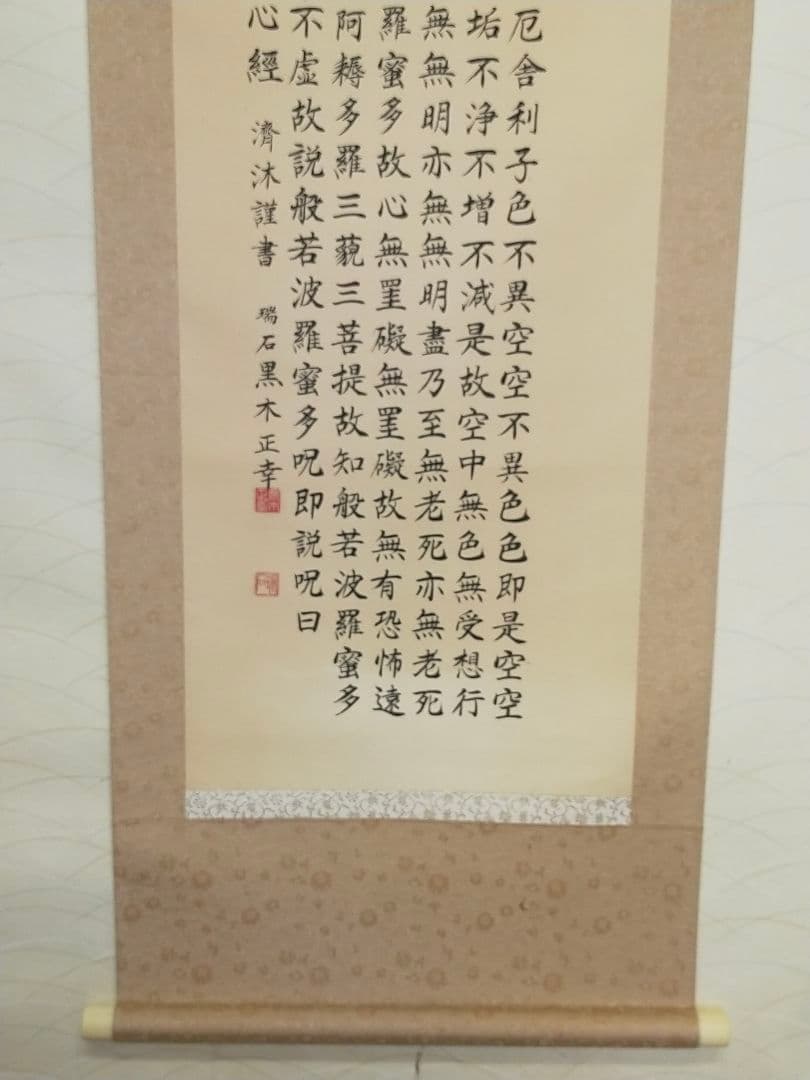 厄舎利子色不異空空不異色色即是空空
垢不浄不増不減是故空中無色無受想行
無無明亦無無明盡乃至無老死亦無老死
羅蜜多故心無罣礙無罣礙故無有恐怖遠
阿耨多羅三藐三菩提故知般若波羅蜜多
不虚故説般若波羅蜜多呪即説呪曰
心經 濟沐謹書 瑞石黒木正幸